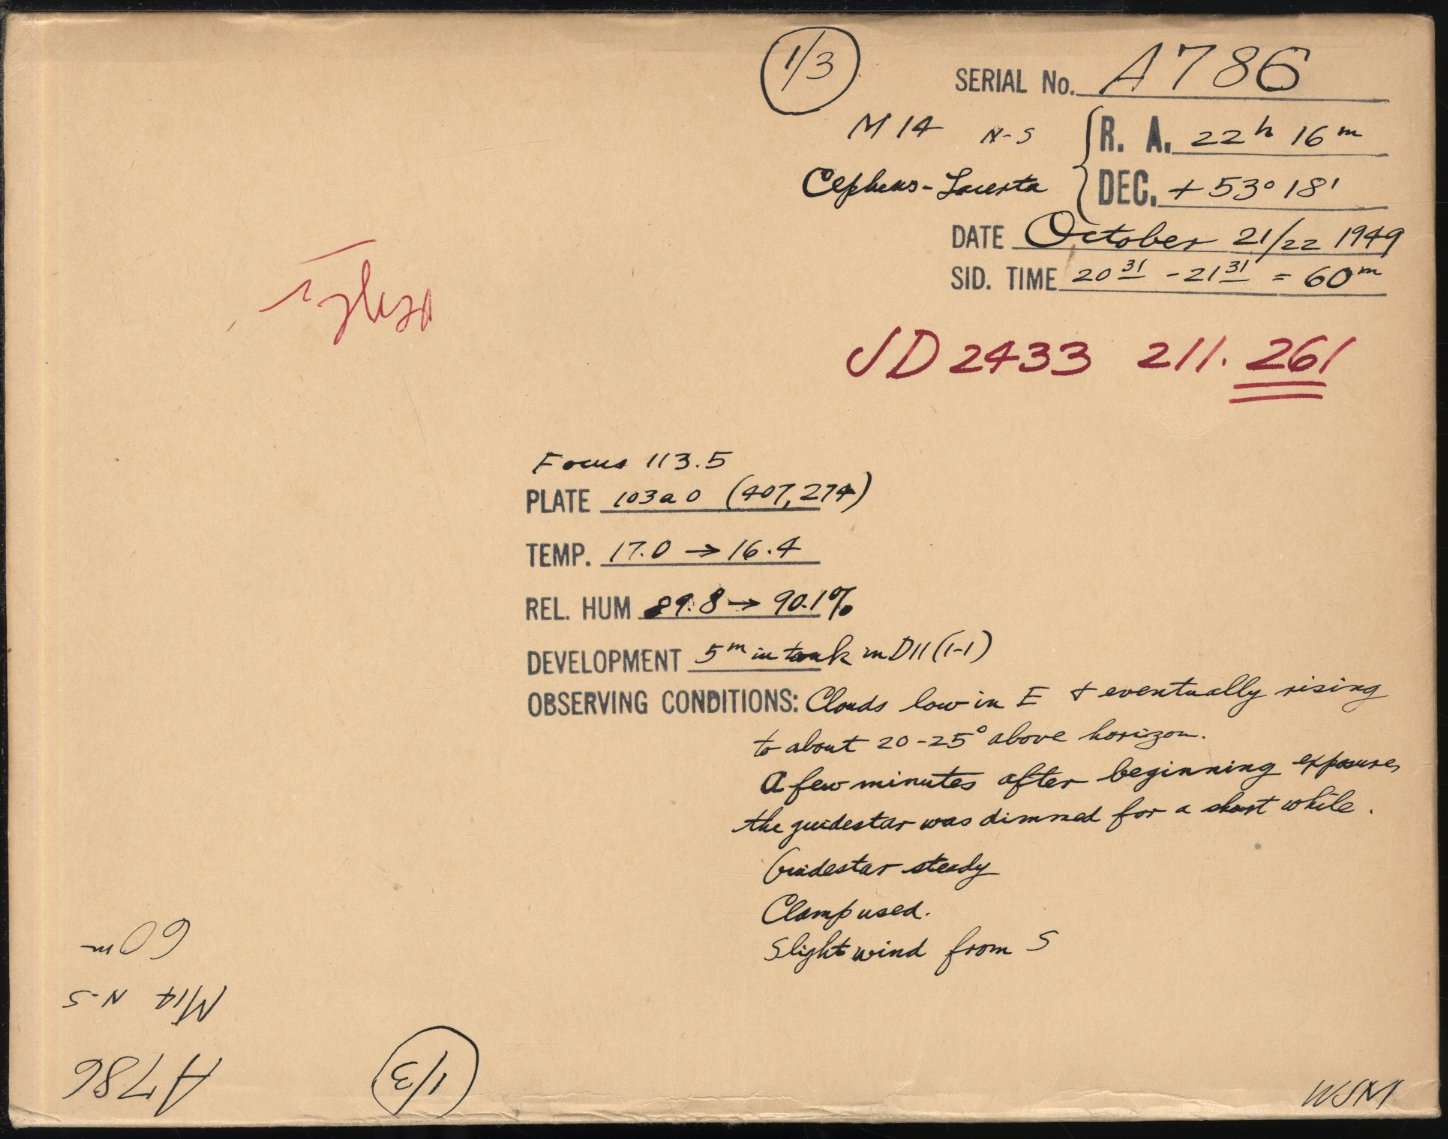 1/3
SERIAL No. A786
M14 N-S
R. A. 22h 16m
Cepheus-Lacerta
DEC. +53° 18'
DATE October 21/22 1949
SID. TIME 20 31 - 21 31 = 60m
JD 2433 211.261
Focus 113.5
PLATE 103a0 (407,274)
TEMP. 17.0 → 16.4
REL. HUM 89.8 → 90.1%
DEVELOPMENT 5m in tank in D11 (1-1)
OBSERVING CONDITIONS: Clouds low in E & eventually rising
to about 20-25° above horizon.
A few minutes after beginning exposure,
the guidestar was dimmed for a short while.
Guidestar steady
Clamp used.
Slight wind from S
60m
M14 N-S
A786
1/3
WSM